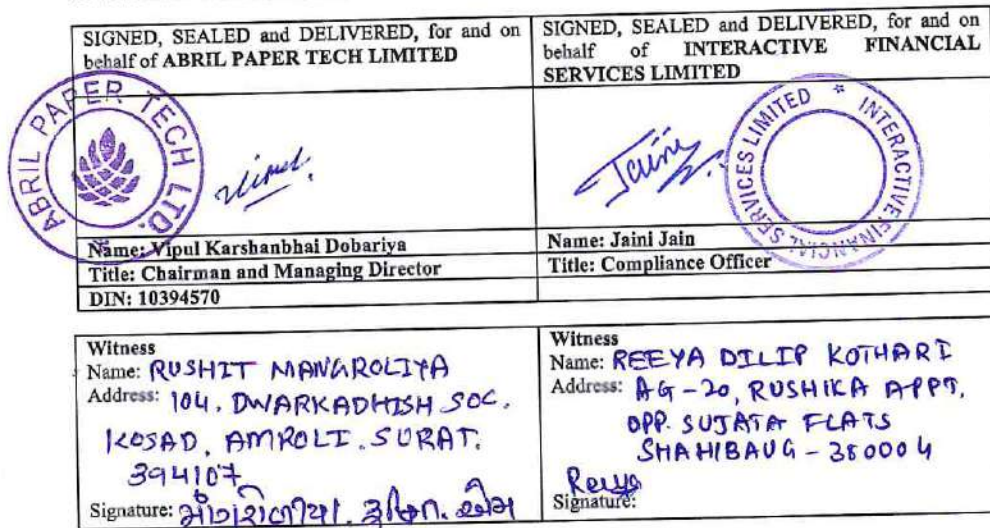 SIGNED, SEALED and DELIVERED, for and on
behalf of ABRIL PAPER TECH LIMITED
SIGNED, SEALED and DELIVERED, for and on
behalf of INTERACTIVE FINANCIAL
SERVICES LIMITED
ABRIL PAPER TECH LTD.
Vipul
Jaini
INTERACTIVE FINANCIAL SERVICES LIMITED *
Name: Vipul Karshanbhai Dobariya
Name: Jaini Jain
Title: Chairman and Managing Director
Title: Compliance Officer
DIN: 10394570
Witness
Name: RUSHIT MANGROLIYA
Address: 104, DWARKADHISH SOC.
KOSAD, AMROLI. SURAT.
394107
Signature:
Witness
Name: REEYA DILIP KOTHARI
Address: AG-20, RUSHIKA APPT,
OPP. SUJATA FLATS
SHAHIBAUG - 380004
Reeya
Signature: